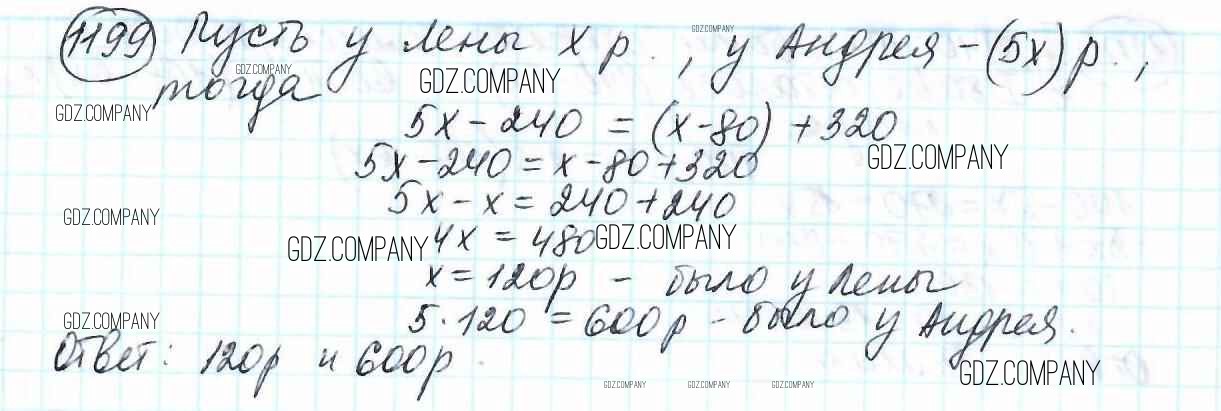 1199 Пусть у Лены x р., у Андрея – (5x) р.,
GDZ.COMPANY
GDZ.COMPANY
тогда
GDZ.COMPANY
GDZ.COMPANY
5x – 240 = (x-80) + 320
5x – 240 = x – 80 + 320
GDZ.COMPANY
5x – x = 240 + 240
GDZ.COMPANY
GDZ.COMPANY
4x = 480
GDZ.COMPANY
x = 120р – было у Лены
5·120 = 600р – было у Андрея.
GDZ.COMPANY
Ответ: 120р и 600р.
GDZ.COMPANY
GDZ.COMPANY
GDZ.COMPANY
GDZ.COMPANY